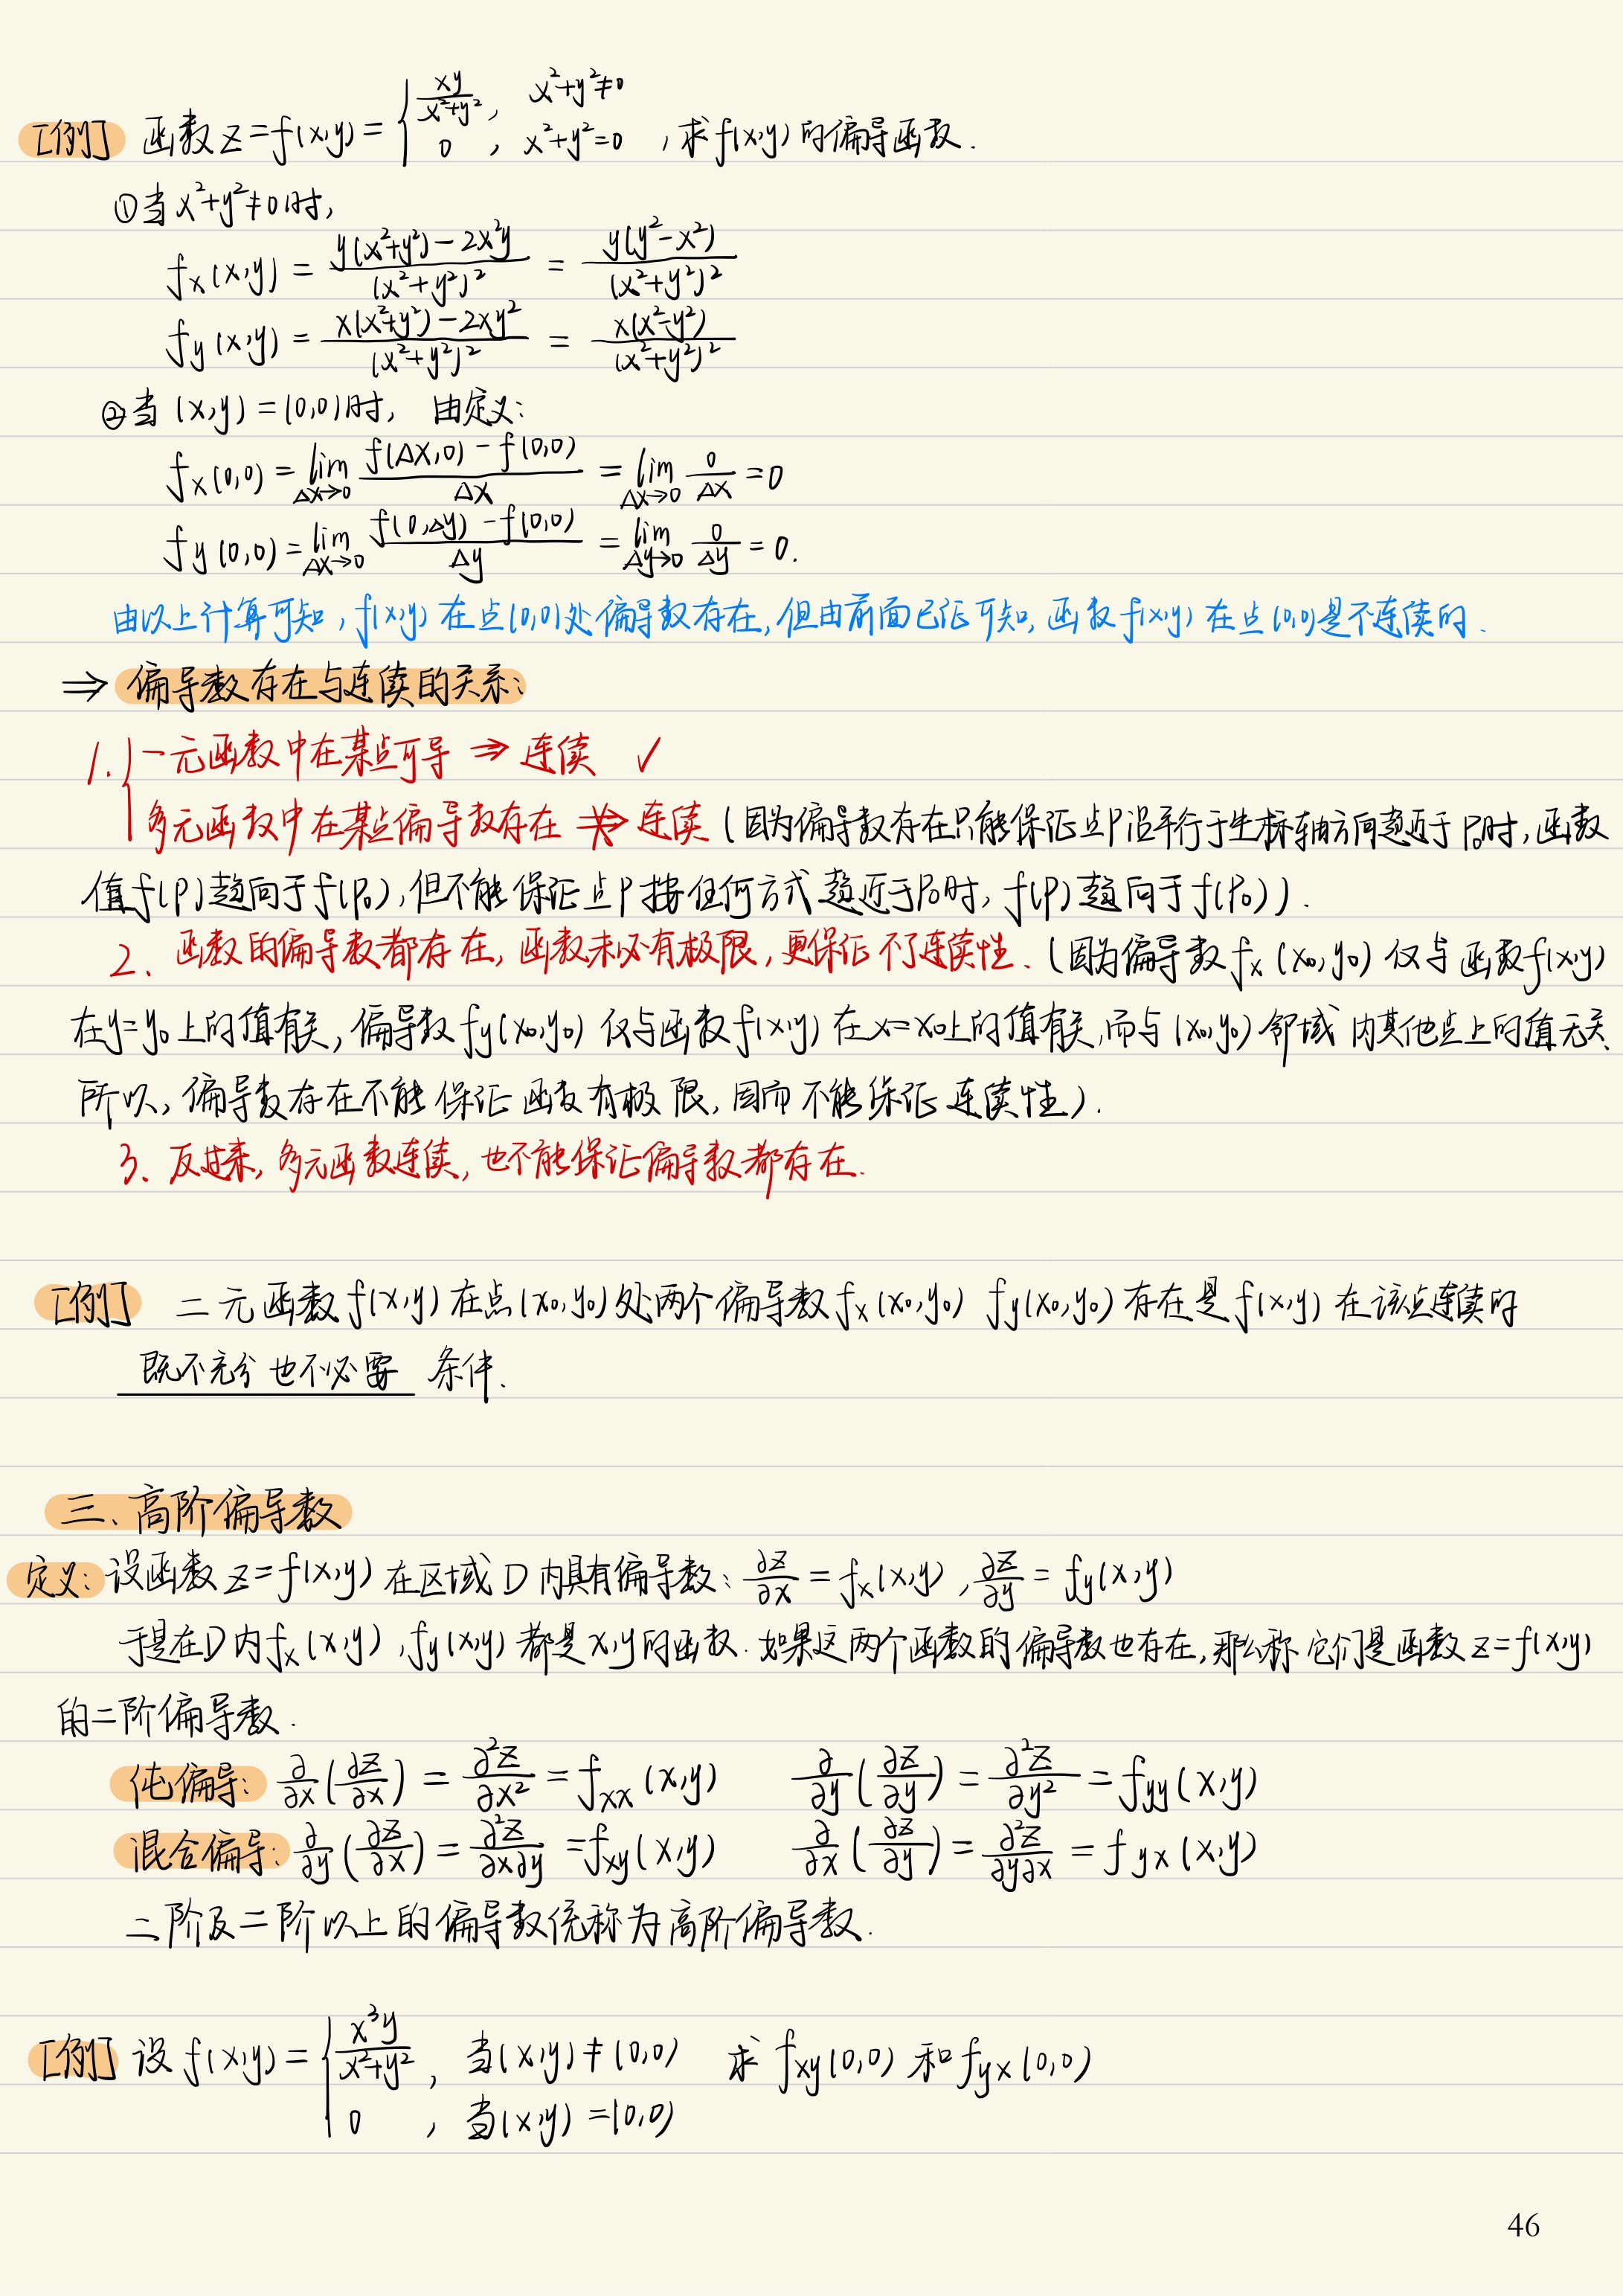 [例] 函数 z=f(x,y)={ xy/(x²+y²), x²+y²≠0
0 , x²+y²=0 ,求f(x,y)的偏导函数.
①当x²+y²≠0时,
fx(x,y) = (y(x²+y²)-2x²y)/(x²+y²)² = y(y²-x²)/(x²+y²)²
fy(x,y) = (x(x²+y²)-2xy²)/(x²+y²)² = x(x²-y²)/(x²+y²)²
②当 (x,y)=(0,0)时, 由定义:
fx(0,0) = lim Δx→0 (f(Δx,0)-f(0,0))/Δx = lim Δx→0 0/Δx = 0
fy(0,0) = lim Δx→0 (f(0,Δy)-f(0,0))/Δy = lim Δy→0 0/Δy = 0.
由以上计算可知,f(x,y)在点(0,0)处偏导数存在,但由前面已证可知,函数f(x,y)在点(0,0)是不连续的.
⇒ 偏导数存在与连续的关系:
1.{ 一元函数中在某点可导 ⇒ 连续 ✓
多元函数中在某点偏导数存在 ⇏ 连续 (因为偏导数存在只能保证点P沿平行于坐标轴方向趋近于P₀时,函数
值f(P)趋向于f(P₀),但不能保证点P按任何方式趋近于P₀时,f(P)趋向于f(P₀)).
2、函数的偏导数都存在,函数未必有极限,更保证不了连续性.(因为偏导数fx(x₀,y₀)仅与函数f(x,y)
在y=y₀上的值有关,偏导数fy(x₀,y₀)仅与函数f(x,y)在x=x₀上的值有关,而与(x₀,y₀)邻域内其他点上的值无关.
所以,偏导数存在不能保证函数有极限,因而不能保证连续性).
3、反过来,多元函数连续,也不能保证偏导数都存在.
[例] 二元函数f(x,y)在点(x₀,y₀)处两个偏导数fx(x₀,y₀) fy(x₀,y₀)存在是f(x,y)在该点连续的
既不充分也不必要 条件.
三、高阶偏导数
定义:设函数z=f(x,y)在区域D内具有偏导数:∂z/∂x = fx(x,y),∂z/∂y = fy(x,y)
于是在D内fx(x,y),fy(x,y)都是x,y的函数.如果这两个函数的偏导数也存在,那么称它们是函数z=f(x,y)
的二阶偏导数.
纯偏导: ∂/∂x(∂z/∂x) = ∂²z/∂x² = fxx(x,y) ∂/∂y(∂z/∂y) = ∂²z/∂y² = fyy(x,y)
混合偏导: ∂/∂y(∂z/∂x) = ∂²z/∂x∂y = fxy(x,y) ∂/∂x(∂z/∂y) = ∂²z/∂y∂x = fyx(x,y)
二阶及二阶以上的偏导数统称为高阶偏导数.
[例] 设f(x,y)={ x³y/(x²+y²), 当(x,y)≠(0,0) 求 fxy(0,0) 和 fyx(0,0)
0 , 当(x,y)=(0,0)
46